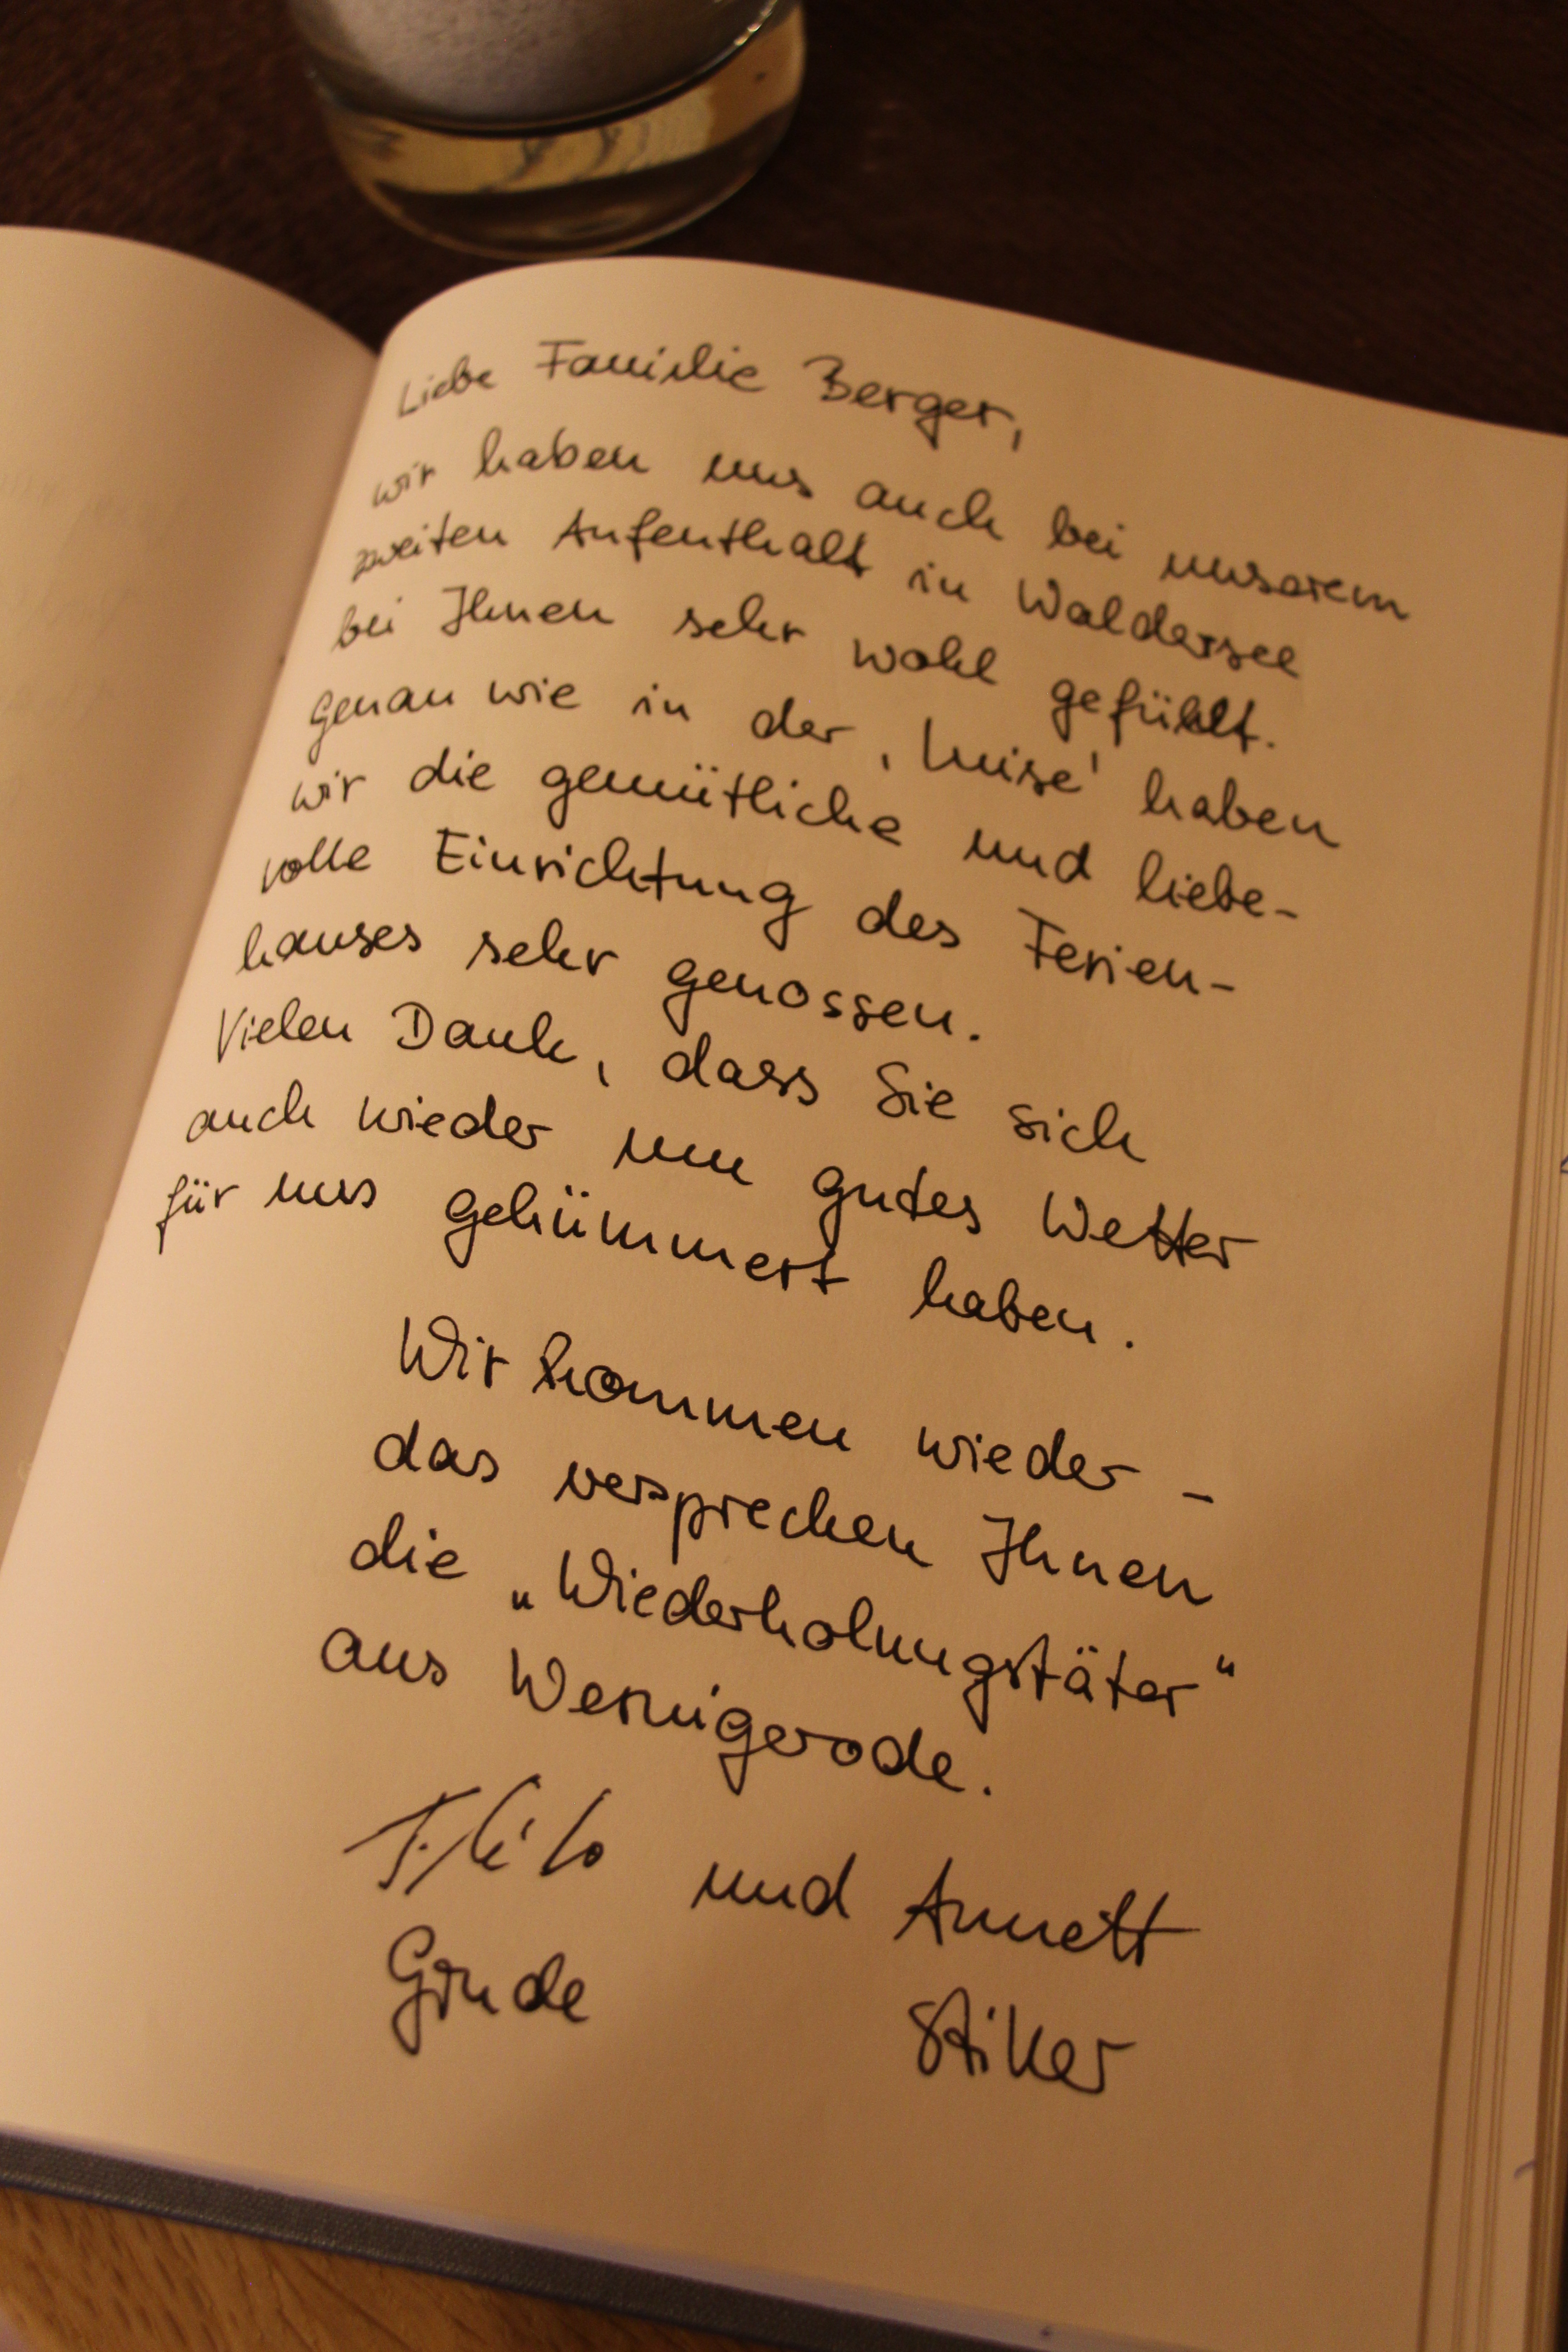 Liebe Familie Berger,
wir haben uns auch bei unserem
zweiten Aufenthalt in Waldersee
bei Ihnen sehr wohl gefühlt.
Genau wie in der ‚Luise' haben
wir die gemütliche und liebe-
volle Einrichtung des Ferien-
hauses sehr genossen.
Vielen Dank, dass Sie sich
auch wieder um gutes Wetter
für uns gekümmert haben.
Wir kommen wieder –
das versprechen Ihnen
die „Wiederholungstäter“
aus Wernigerode.
und Annett